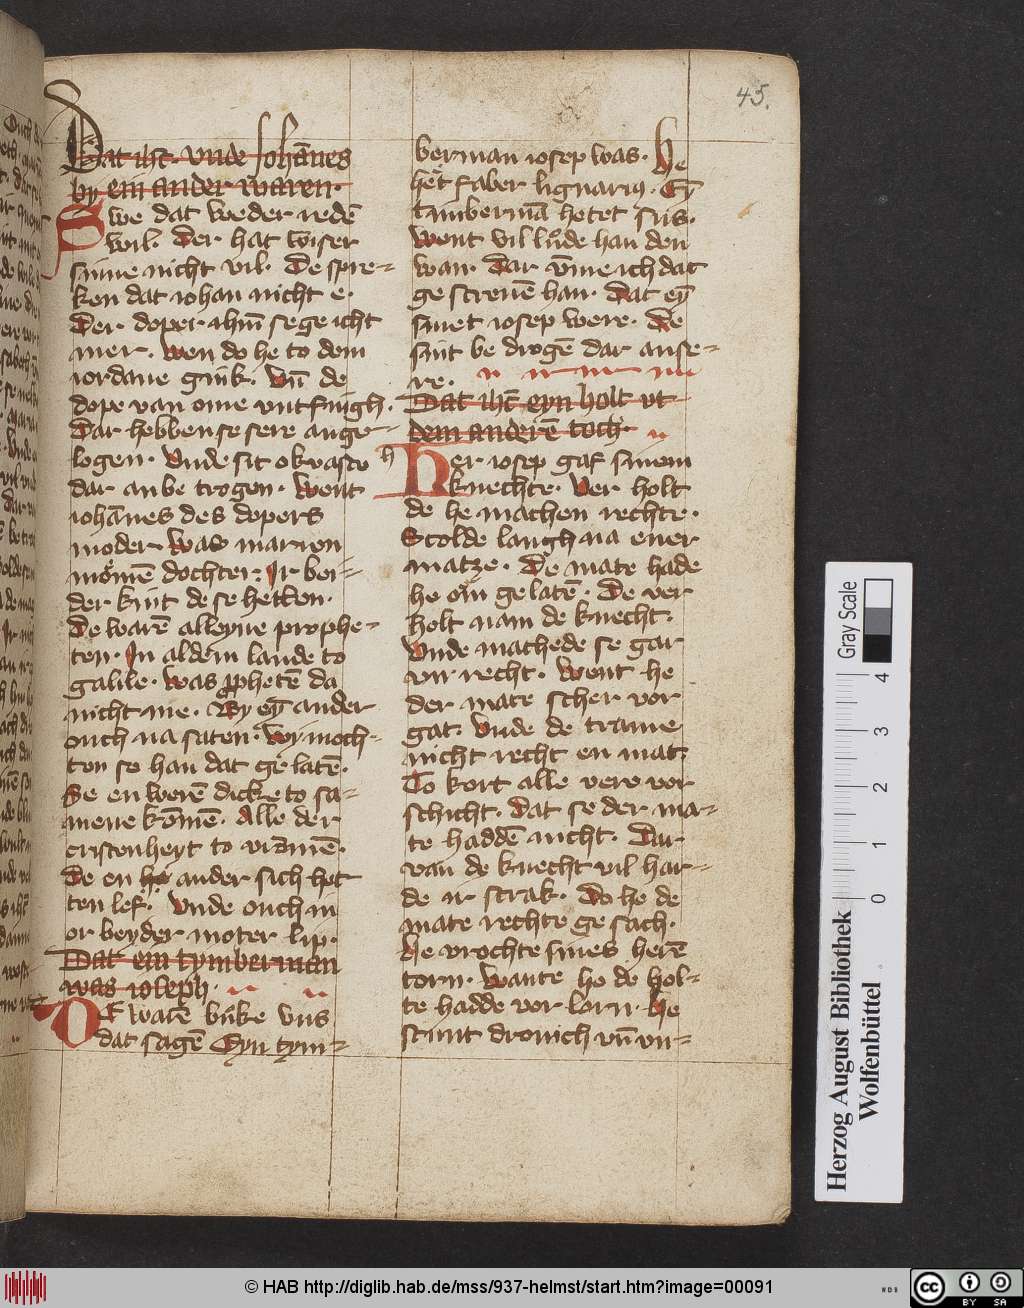 45.
Dat ihc vnde Johānes
by ein ander waren
Swe dat weder redē
wil. Der hat wiser
sinne nicht vil. De spre-
ken dat iohan nicht e.
Der doper ihm sege icht
mer. wen do he to dem
iordane gink. vn̄ de
dope van ome vntfingh.
Dar hebben se sere ange-
logen. vnde sit
dar an be trogen. went
iohānes des dopers
moder was marien
mömē dochter. Ir bei-
der kint de se hetten.
De warē alleyne prophe-
ten. In aldem lande to
galile. was ꝓphetē da
nicht me. By eȳ ander
ouch na saten. wy moch-
ten se han dat ge latē.
Se en werē dicke to sa-
mene kōmē. Alle der
cristenheyt to vramē.
De en he ander sich het
ten lef. vnde ouch in
or beyder moter lip.
Dat ein tymberman
was ioseph.
DE warē büke vns
dat sagē Eyn tym-
berman iosep was. he
het faber lignariꝯ. Eȳ
timbermā hetet sus.
went vil lüde han den
wan. Dar vmme ich dat
ge screuē han. Dat eȳ
smet iosep were. De
sint be drogē dar an se-
re.
Dat ihc eyn holt vt
dem anderē toch
h
Her iosep gaf sinem
knechte. ver holt
de he machen rechte.
Scolde langh na ener
matze. De mate hade
he om ge latē. De ver
holt nam de knecht.
vnde machede se gar
vn recht. went he
der mate scher vor
gat. vnde de trame
nicht recht en mat.
To kort alle vere vor
schicht. Dat se der ma-
te haddē nicht. Dar
van de knecht vil har-
de ir scrak. Do he de
mate rechte ge sach.
he vrochte sines herē
torn. wante he de hol-
te hadde vor lorn. he
stunt drouich vn̄ vn-
Herzog August Bibliothek
Wolfenbüttel
0 1 2 3 4
Gray Scale
© HAB http://diglib.hab.de/mss/937-helmst/start.htm?image=00091
WDB
cc BY SA